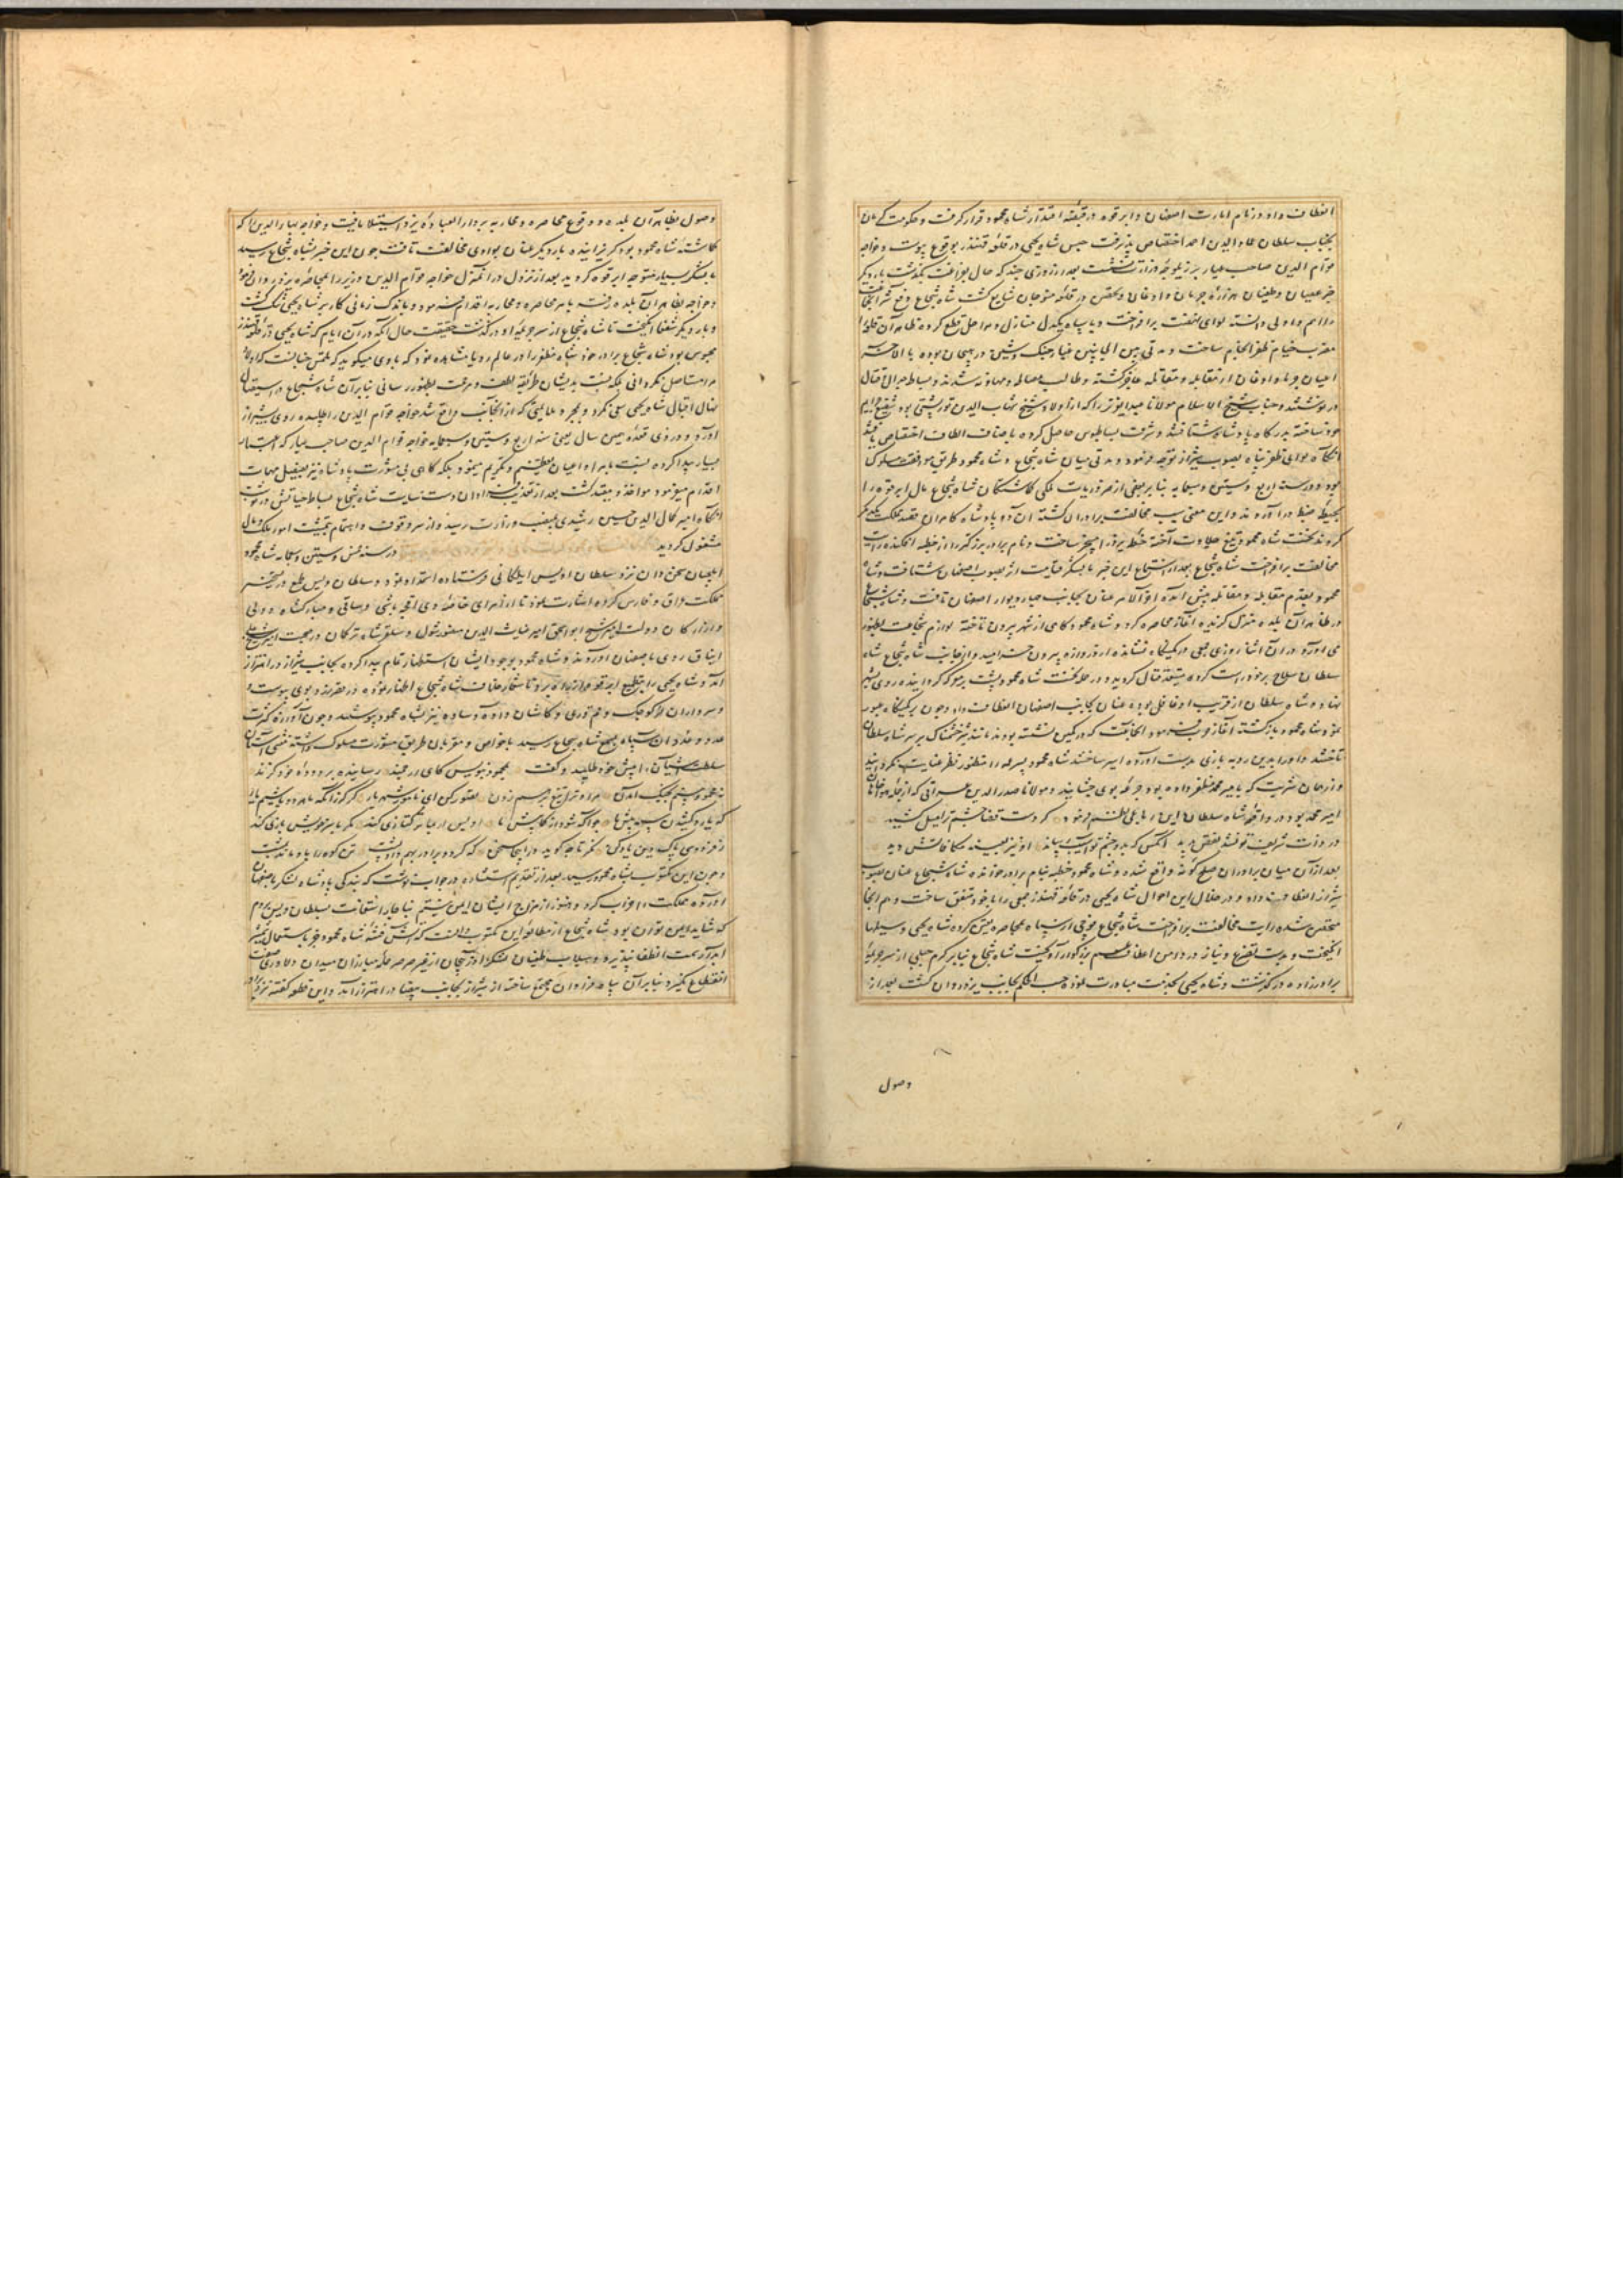 انعطاف داد و زمام امارت اصفهان و ابرقوه در قبضه اقتدار شاه محمود قرار گرفت و حکومت کرمان
بجناب سلطان عماد الدین احمد اختصاص پذیرفت حبس شاه یحیی در قلعه قهندز بوقوع پیوست و خواجه
قوام الدین صاحب عیار بر
خبر عصیان و طغیان هزاره جرمان و اوغان و تحصن در قلعه منوجان شایع گشت شاه شجاع دفع شر
را اهم و اولی دانسته لوای نهضت برافراخت و با سپاه یکدل منازل و مراحل قطع کرده ظاهر آن قلعه را
مضرب خیام ظفر انجام ساخت و مدتی بین الجانبین غبار جنک و شین در هیجان بوده بالاخره
اعیان جرما و اوغان از مقابله و مقاتله عاجز گشته و طالب مصالحه و معاونه شدند و بساط جدال و قتال
در نوشتند و جناب شیخ الاسلام مولانا را که از اولاد شیخ شهاب الدین تورپشتی بود شفیع جرایم
خود ساخته بدرگاه پادشاه شتافتند و شرف بساطبوس حاصل کرده باصناف الطاف اختصاص یافتند
انگاه لوای ظفر پناه بصوب شیراز توجه فرمود و مدتی میان شاه شجاع و شاه محمود طریق موافقت مسلوک
بود و در سنه اربع و ستین و سبعمایه بنا بر بعضی از ضروریات ملکی گماشتگان شاه شجاع مال ابرقوه را
بحیطه ضبط درآوردند و این معنی سبب مخالفت برادران گشته آن دو پادشاه کامران قصد مملکت یکدیگر
کردند نخست شاه محمود تیغ عداوت آخته خطه یزد را مسخر ساخت و نام برادر بزرگتر را از خطبه افکنده رایت
مخالفت برافراخت شاه شجاع بعد از استماع این خبر با لشکر قیامت اثر بصوب اصفهان شتافت و شاه
محمود بقدم مقابله و مقاتله پیش آمده آخر الامر عنان بجانب حصار و دیوار اصفهان تافت و شاه شجاع
در ظاهر آن بلده منزل گزیده آغاز محاصره کرد و شاه محمود گاهی از شهر بیرون تاخته لوازم شجاعت بظهور
می آورد در آن اثنا روزی جمعی در کمینگاه نشانده از دروازه بیرون خرامید و از جانب شاه شجاع شاه
سلطان سلاح بر خود راست کرده متصدی قتال گردید و در حمله نخست شاه محمود پشت بر معرکه گردانیده روی بشهر
نهاد و شاه سلطان از فریب او غافل بوده عنان بجانب اصفهان انعطاف داد و چون بر کمینگاه عبور
نمود شاه محمود بازگشته آغاز حرب نمود آن جماعت که در کمین نشسته بودند مانند شیر خشمناک بر سر شاه سلطان
تاختند و او را بدین روبه بازی بدست آورده اسیر ساختند شاه محمود پسر عمه را منظور نظر عنایت نگردانید
و از همان شربت که بامیر محمد مظفر داده بود جرعه بوی چشانید و مولانا صدر الدین عراقی که از جمله
امیر محمد بود در واقعه شاه سلطان این رباعی نظم فرمود گر دست قضا بچشم تو میل کشید
در ذات شریف تو نشد نقص پدید آنکس که بدو چشم تو آسیب رساند او نیز بعینه مکافاتش دید
بعد از آن میان برادران صلح گونه واقع شده و شاه محمود خطبه بنام برادر خوانده شاه شجاع عنان بصوب
شیراز انعطاف داد و در خلال این احوال شاه یحیی در قلعه قهندز جمعی را با خود متفق ساخت و هم انجا
متحصن شده رایت مخالفت برافراخت شاه شجاع فوجی از سپاه بمحاصره تعیین کرده شاه یحیی وسیلها
انگیخت و بدست تضرع و نیاز در دامن اعطاف عم بزرگوار آویخت شاه شجاع بنا بر کرم جبلی از سر جریمه
برادرزاده در گذشت و شاه یحیی بخدمت مبادرت نموده حسب الحکم بجانب یزد روان گشت بعد از
وصول
وصول بظاهر آن بلده و وقوع محاصره و محاربه بر دار العباده یزد استیلا یافت و خواجه بهاء الدین را که
گماشته شاه محمود بود گریزانیده بار دیگر عنان بوادی مخالفت تافت چون این خبر بشاه شجاع رسید
با لشکر بسیار متوجه ابرقوه گردید بعد از نزول در آن منزل خواجه قوام الدین وزیر را بمحاصره یزد روان فرمود
و خواجه بظاهر آن بلده رفته بامر محاصره و محاربه اقدام نمود و باندک زمانی کار بر شاه یحیی تنگ گشت
و بار دیگر شفعا انگیخت تا شاه شجاع از سر جریمه او در گذشت حقیقت حال آنکه در آن ایام که شاه یحیی در قلعه قهندز
محبوس بود شاه شجاع برادر خود شاه مظفر را در عالم رویا مشاهده نمود که با وی میگوید که ملتمس چنانست که اولاد
مرا مستاصل نگردانی بلکه نسبت بدیشان طریقه لطف و مرحمت بظهور رسانی بنابر آن شاه شجاع در استیصال
نهال اقبال شاه یحیی سعی نکرد و بمجرد ملایمتی که از آن جانب واقع شد خواجه قوام الدین را طلبیده روی بشیراز
آورد و در ذی قعده همین سال یعنی سنه اربع و ستین و سبعمایه خواجه قوام الدین صاحب عیار که اعتبار
بسیار پیدا کرده نسبت بامرا و اعیان تعظیم و تکریم نمینمود بلکه گاهی بی مشورت پادشاه نیز بفیصل مهمات
اقدام میفرمود مواخذ و مقید گشت بعد از تعذیب فراوان دست سیاست شاه شجاع بساط حیاتش در نوشت
انگاه امیر کمال الدین حسین رشیدی بمنصب وزارت رسید و از سر وقوف و اهتمام بتمشیت امور ملک و مال
مشغولی گردید در سنه خمس و ستین و سبعمایه شاه محمود
ایلچیان سخن دان نزد سلطان اویس ایلکانی فرستاده استمداد نمود و سلطان اویس طمع در تسخیر
مملکت عراق و فارس کرده اشارت نمود تا از امرای خاصه وی اقجه باشی و ساتی و مبارکشاه دولی
و از ارکان دولت امیر شیخ ابو اسحق امیر غیاث الدین منصور شول و سلغر شاه ترکان در صحبت امیر شیخ علی
ایناق روی باصفهان آوردند و شاه محمود بوجود ایشان استظهار تمام پیدا کرده بجانب شیراز در اهتزاز
آمد و شاه یحیی را بتطمیع ابرقوه از راه برد تا شعار خلاف شاه شجاع اظهار نموده در مقر یزد بوی پیوست
و سرداران لر کوچک و قم و ری و کاشان و آوه و ساوه نیز بشاه محمود پیوستند و چون آوازه کثرت
عدد و عدد آن سپاه بسمع شاه شجاع رسید با خواص و مقربان طریق مشورت مسلوک داشته منشی آستان
سلطنت آشیان را پیش خود طلبید و گفت بمحمود بنویس کای ارجمند رساینده بر دوده خود گزند
نه محمود بینم بجنگ آمدن برادر را تیغ بر سر زدن تصور کن ای نامور شهریار گر کرز آنکه ما هر دو باشیم یار
که یارد کشیدن سپه پیش ما چو آگه شود از کمابیش ما اویس ار بما ترکتازی کند مگر با سر خویش بازی کند
ز فردوسی پاک دین یاد کن نگر تا چه گوید در این جا سخن که گر دو برادر نهد پشت پشت تن کوه را باد ماند بمشت
و چون این مکتوب بشاه محمود رسید بعد از تقدیم استشاره در جواب نوشت که بندگی پادشاه لشکر باصفهان
آورده مملکت را خراب کرد و هنوز از مزاج ایشان ایمن نیستم بناچار استعانت بسلطان اویس بردم
که شاید ایمن توان بود شاه شجاع از مطالعه این مکتوب دانست که آتش فتنه شاه محمود جز باستعمال شمشیر
آبدار سمت انطفا نپذیرد و سیلاب طغیان لشکر آذربایجان از غیر صرصر حمله مبارزان میدان دلاوری صفت
انقطاع نگیرد بنابر آن سپاه فراوان مجتمع ساخته از شیراز بجانب بیضا در اهتزاز آمد و این قطعه گفته نزد برادر